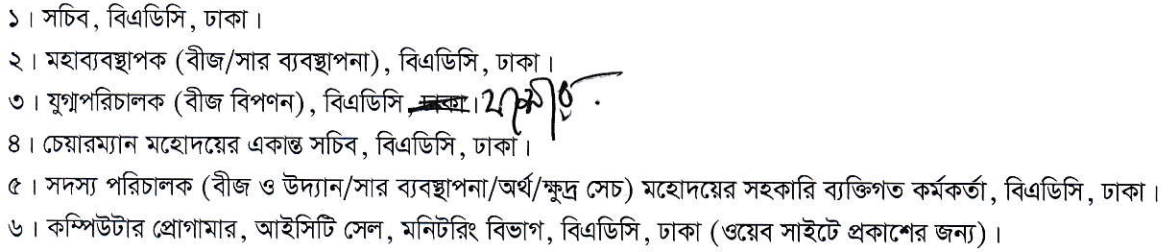 ১। সচিব, বিএডিসি, ঢাকা।
২। মহাব্যবস্থাপক (বীজ/সার ব্যবস্থাপনা), বিএডিসি, ঢাকা।
৩। যুগ্মপরিচালক (বীজ বিপণন), বিএডিসি, ঢাকা।
৪। চেয়ারম্যান মহোদয়ের একান্ত সচিব, বিএডিসি, ঢাকা।
৫। সদস্য পরিচালক (বীজ ও উদ্যান/সার ব্যবস্থাপনা/অর্থ/ক্ষুদ্র সেচ) মহোদয়ের সহকারি ব্যক্তিগত কর্মকর্তা, বিএডিসি, ঢাকা।
৬। কম্পিউটার প্রোগামার, আইসিটি সেল, মনিটরিং বিভাগ, বিএডিসি, ঢাকা (ওয়েব সাইটে প্রকাশের জন্য)।